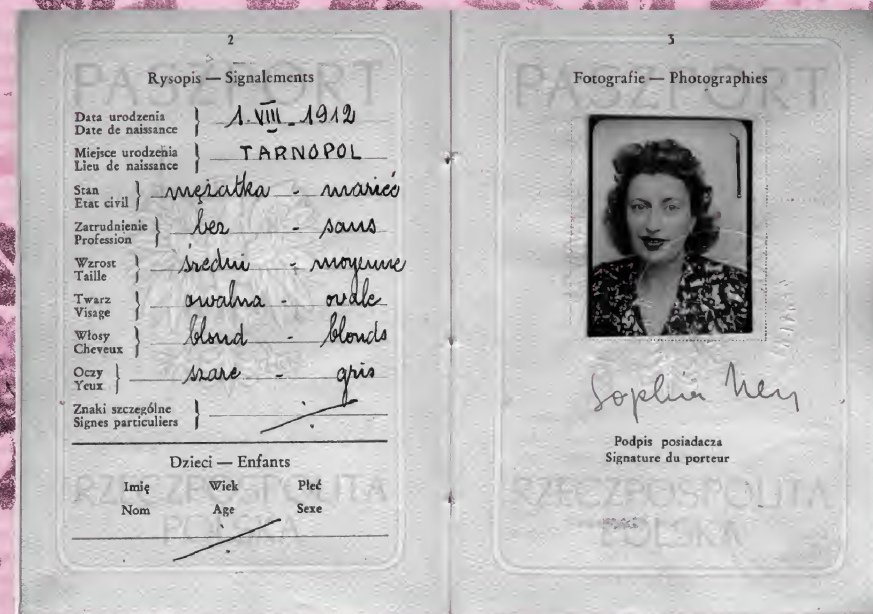 2
PASZPORT
Rysopis — Signalements
Data urodzenia
Date de naissance } 1. VIII_1912
Miejsce urodzenia
Lieu de naissance } TARNOPOL
Stan
Etat civil } mężatka - mariée
Zatrudnienie
Profession } bez - sans
Wzrost
Taille } średni - moyenne
Twarz
Visage } owalna - ovale
Włosy
Cheveux } blond - blonds
Oczy
Yeux } szare - gris
Znaki szczególne
Signes particuliers }
Dzieci — Enfants
Imię Wiek Płeć
Nom Age Sexe
RZECZPOSPOLITA
POLSKA
3
PASZPORT
Fotografie — Photographies
Sophia Ney
Podpis posiadacza
Signature du porteur
RZECZPOSPOLITA
POLSKA